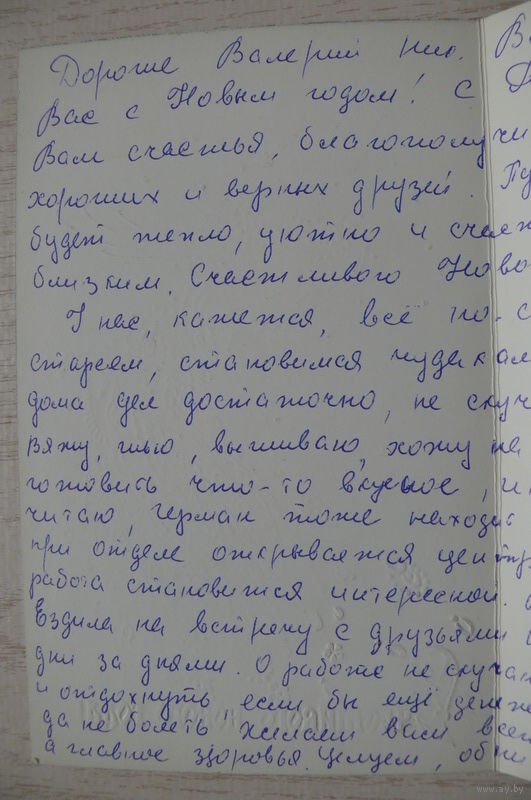 Дорогие Валерий Ник. В
Вас с Новым годом! С Д
Вам счастья, благополучи
хороших и верных друзей. Пу
будет тепло, уютно и счаст
близким. Счастливого Ново
У нас, кажется, всё по-с
стареем, становимся чудакам
дома дел достаточно, не скуч
Вяжу, шью, вышиваю, хожу на
готовить что-то вкусное, и
читаю, Герман тоже находит
при отделе открывается центр
работа становится интересной.
Ездила на встречу с друзьями
дни за днями. О работе не скучаю
и отдохнуть, если бы ещё денеже
да не болеть. Желаем вам всем
а главное здоровья. Целуем, обни
www.ay.by